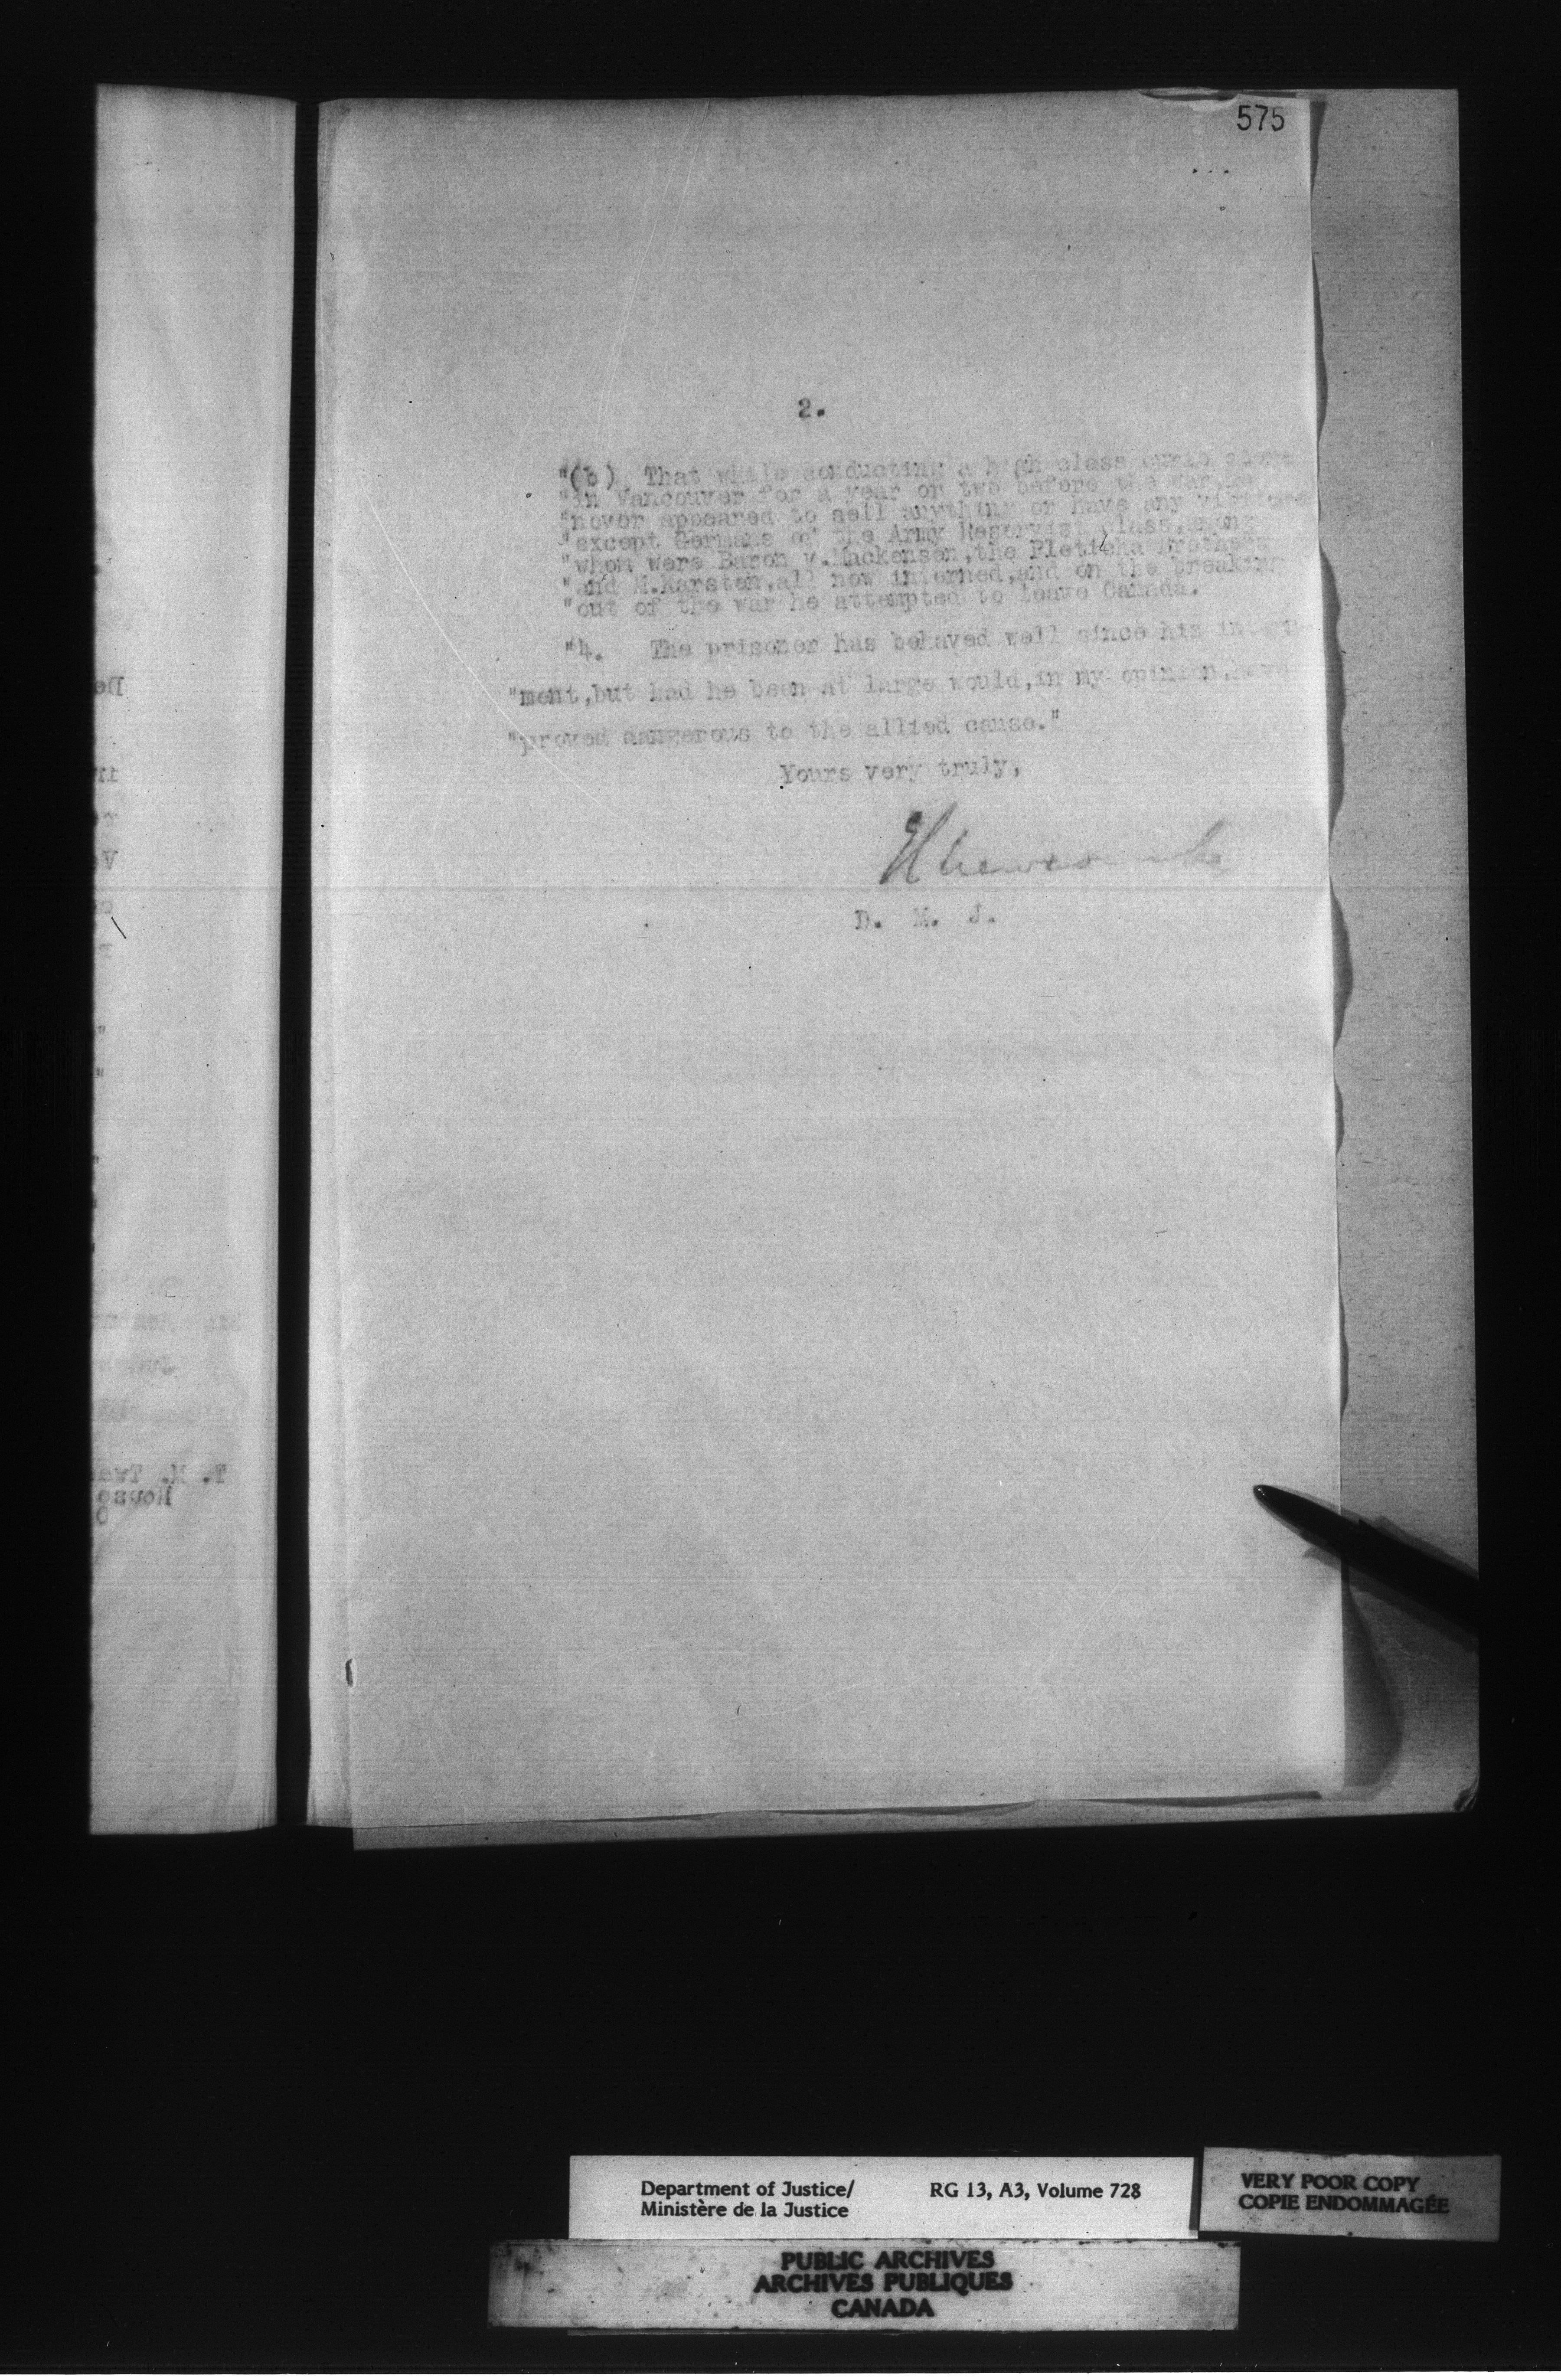 575
2.
"(b) That while conducting a high class curio store
"in Vancouver for a year or two before the war, he
"never appeared to sell anything or have any visitors
"except Germans of the Army Reservist class, among
"whom were Baron v. Mackensen, the Pleticha Brothers
"and M. Karsten, all now interned, and on the breaking
"out of the war he attempted to leave Canada.
"4. The prisoner has behaved well since his intern-
"ment, but had he been at large would, in my opinion, have
"proved dangerous to the allied cause."
Yours very truly,
D. M. J.
T. M. Twe
House
Department of Justice/ RG 13, A3, Volume 728
Ministère de la Justice
VERY POOR COPY
COPIE ENDOMMAGÉE
PUBLIC ARCHIVES
ARCHIVES PUBLIQUES
CANADA